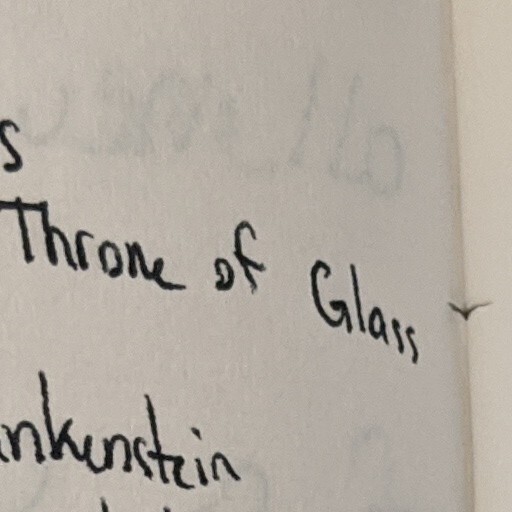 s
Throne of Glass
ankenstein